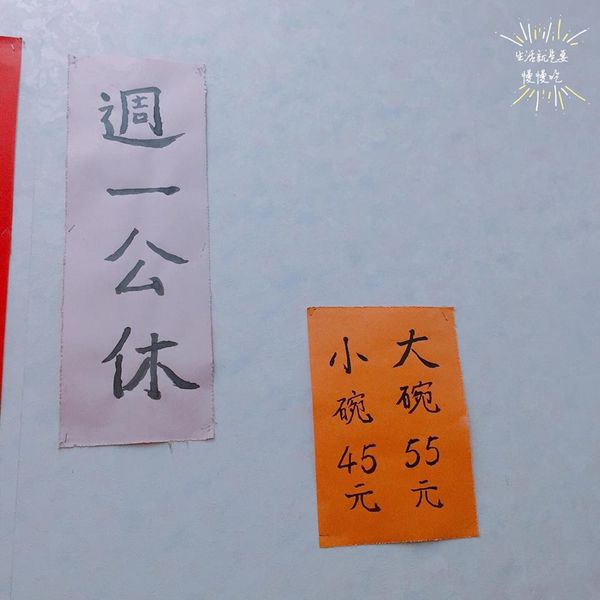 週一公休
大碗55元
小碗45元
生活就是要
慢慢吃